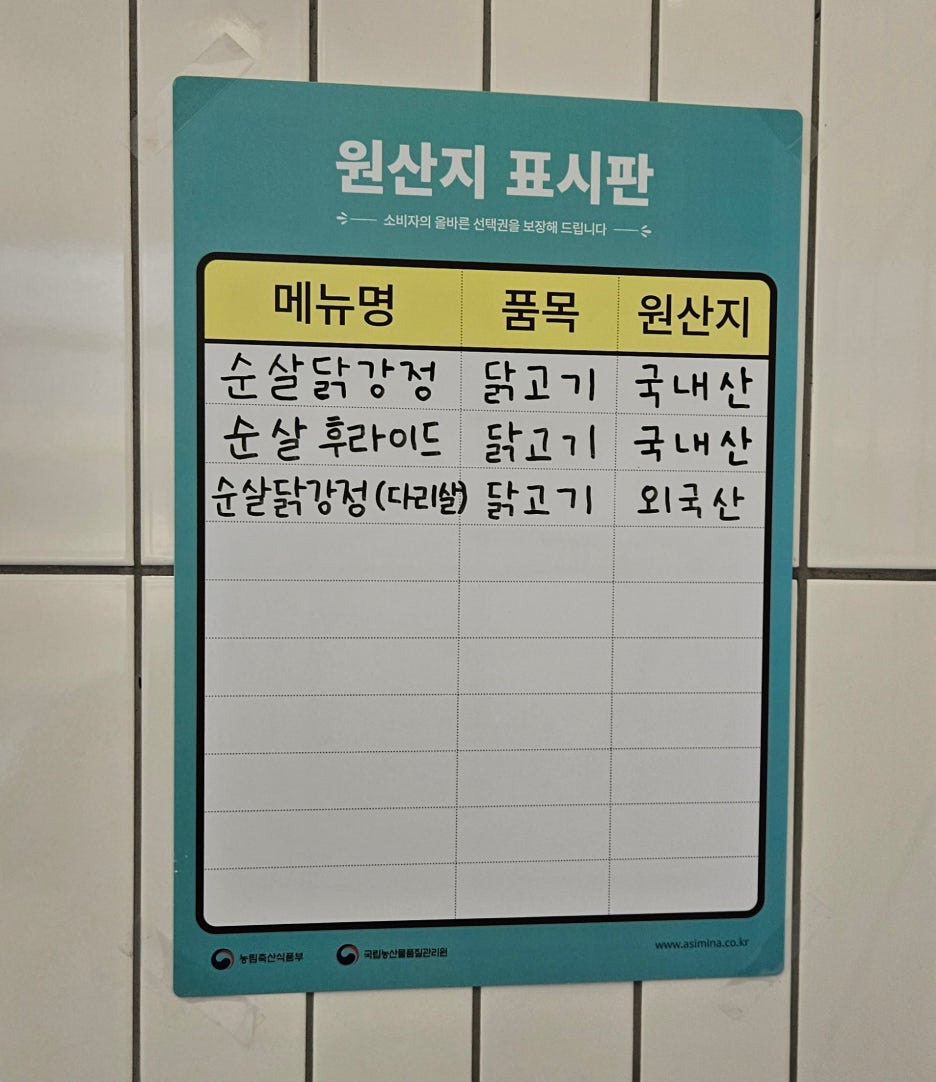 원산지 표시판
소비자의 올바른 선택권을 보장해 드립니다
메뉴명 품목 원산지
순살닭강정 닭고기 국내산
순살 후라이드 닭고기 국내산
순살닭강정(다리살) 닭고기 외국산
농림축산식품부 국립농산물품질관리원 www.asimina.co.kr